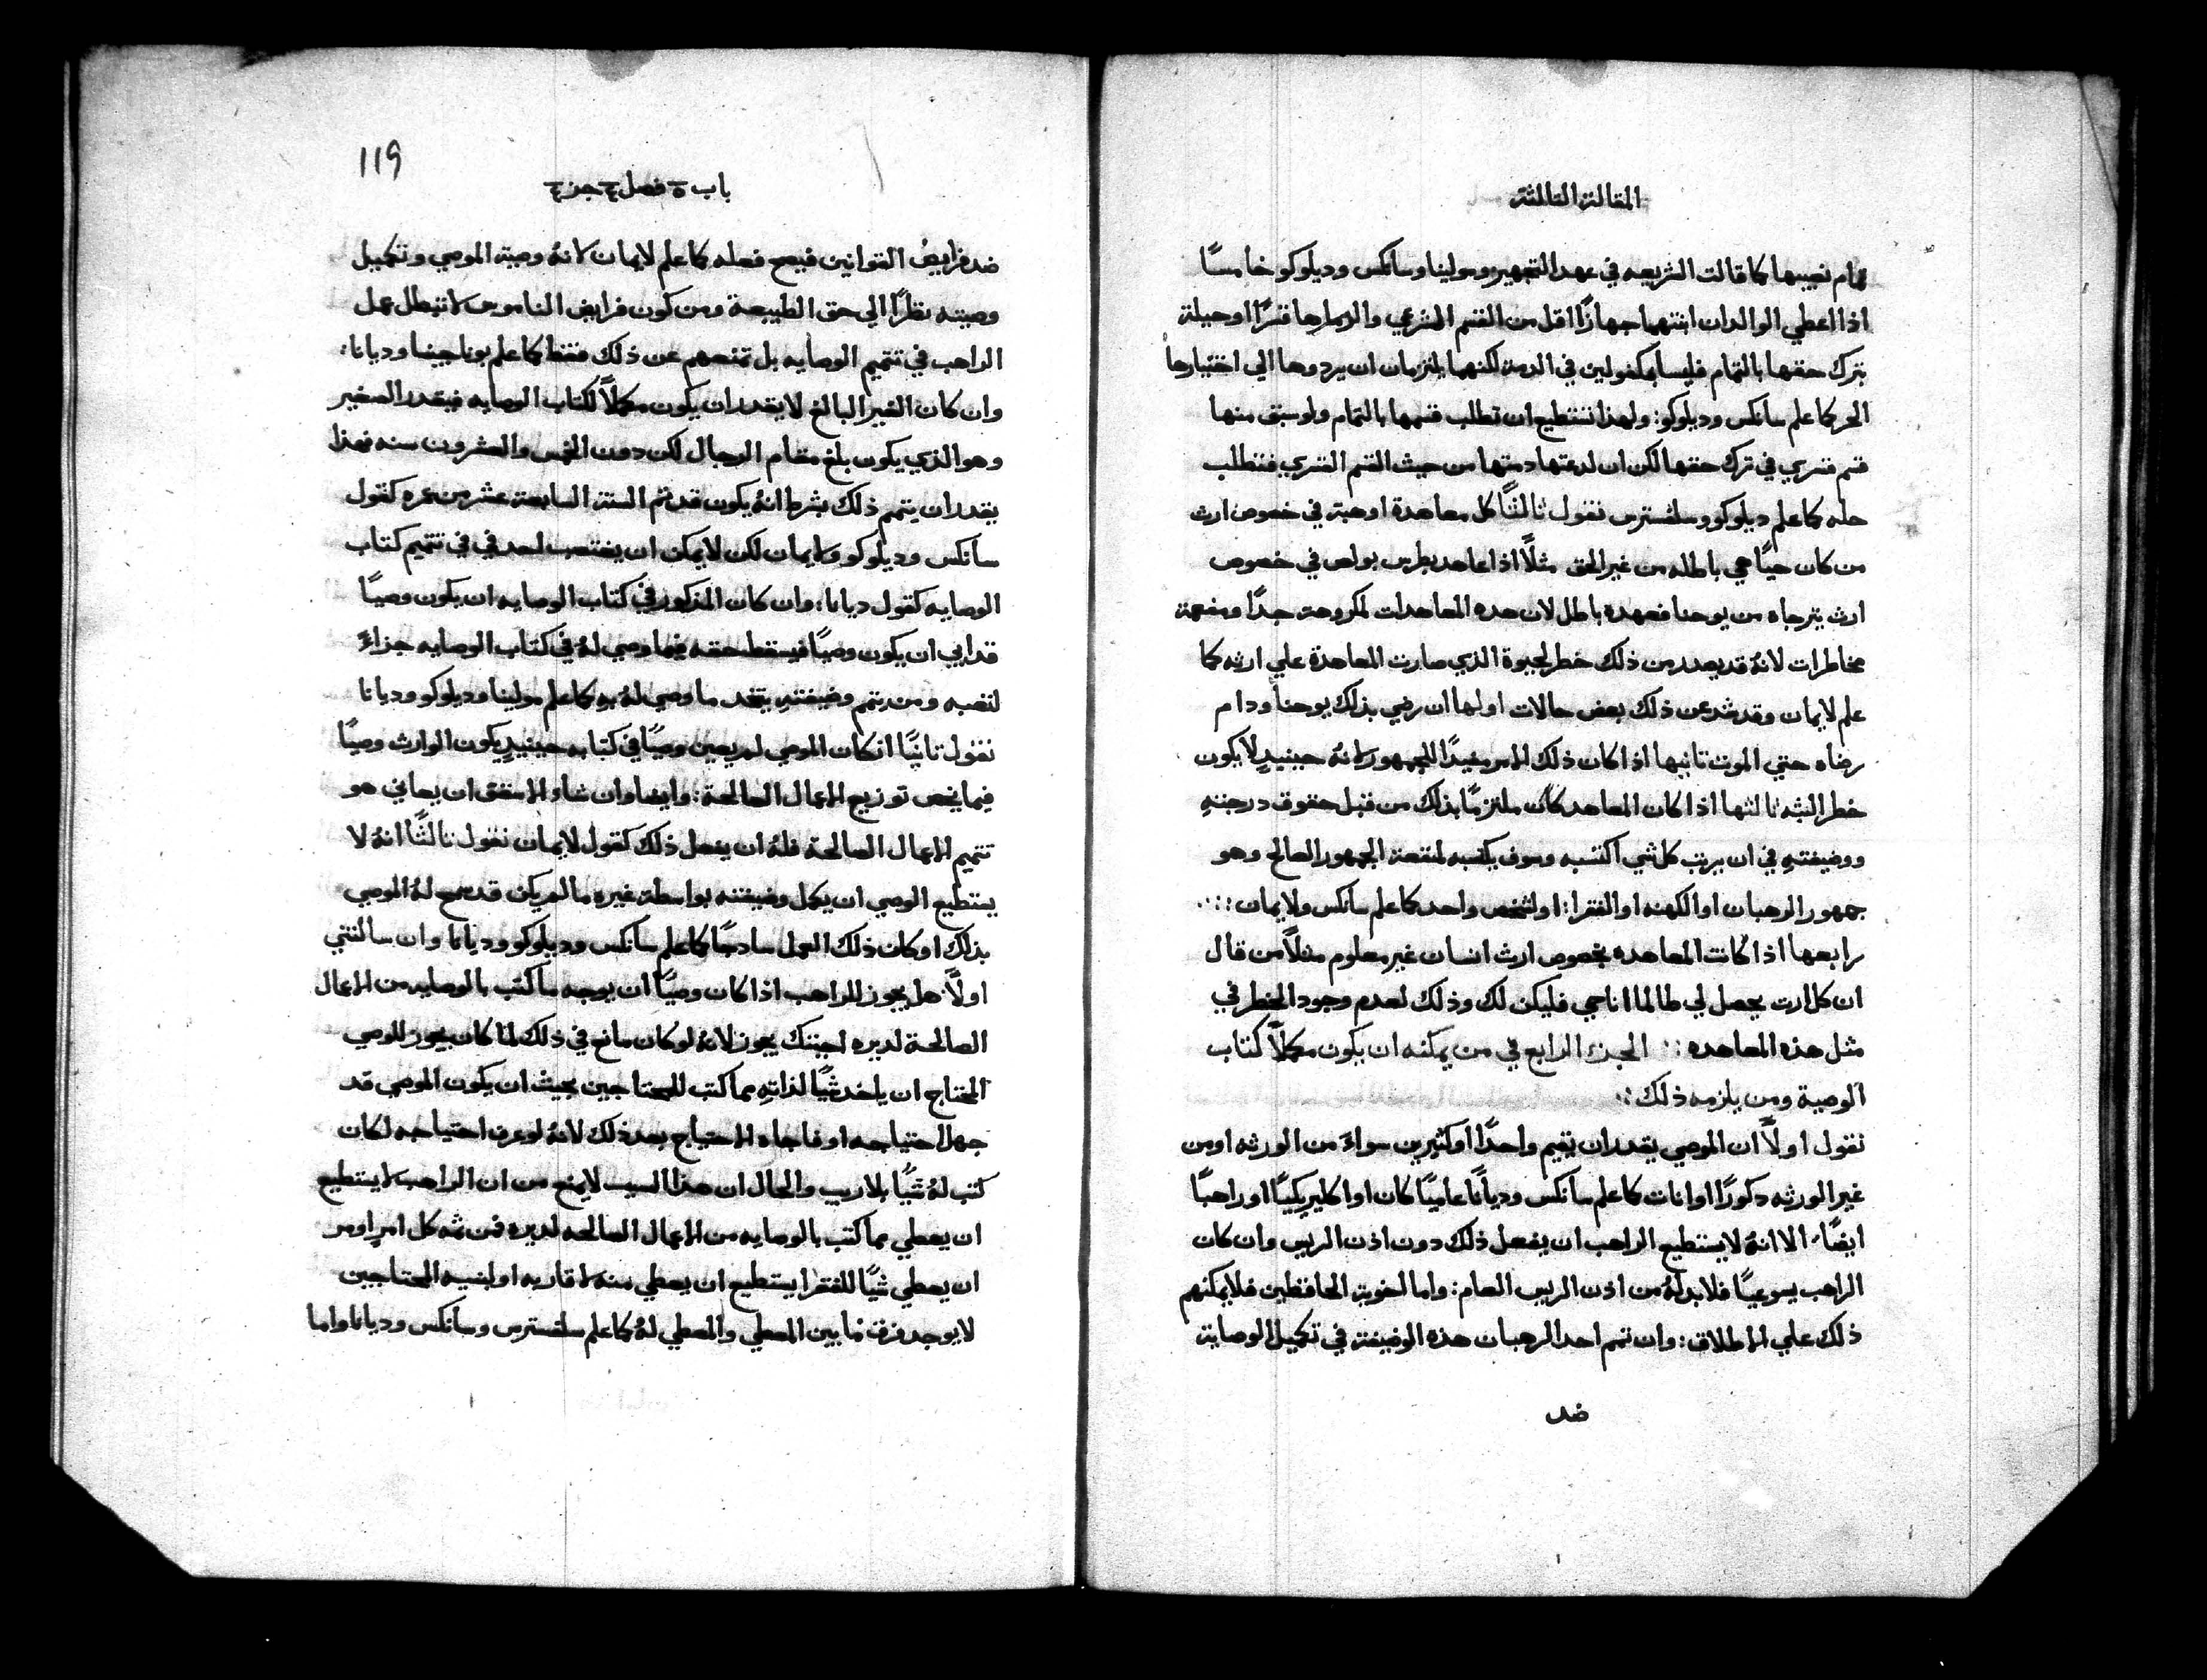 المقالة الثالثة
تمام نصيبها كما قالت الشريعه في عهد التجهيز ومولينا وسانكس وديلوكو خامسًا
اذا اعطي الوالدان ابنتهما جهازًا اقل من القسم الشرعي والزماها قسرًا او حيلة
بترك حقها بالتمام فليسا مكفولين في الذمة لكنهما يلتزمان ان يردوها الي اختيارها
الحر كما علم سانكس وديلوكو: ولهذا تستطيع ان تطلب قسمها بالتمام ولو سبق منها
قسم قسري في ترك حقها لكن ان لدعتها دمتها من حيث القسم القسري فتطلب
حله كما علم ديلوكو وسلفسترس نقول ثالثًا كل معاهدة او هبة في خصوص ارث
من كان حيًا هي باطله من غير الحق مثلًا اذا عاهد بطرس بولص في خصوص
ارث يترجاه من يوحنا فعهده باطل لان هذه المعاهدات لمكروهة جدًا ومفعمة
مخاطرات لانهُ قد يصدر من ذلك خطر لحيوة الذي صارت المعاهدة علي ارثه كما
علم لايمان وقد شد عن ذلك بعض حالات اولها ان رضي بذلك يوحنا ودام
رضاه حتي الموت ثانيها اذا كان ذلك الامر مفيدًا للجمهور لانهُ حينيدٍ لا يكون
خطر البثه ثالثها اذا كان المعاهد كان ملتزمًا بذلك من قبل حقوق درجته
ووضيفتهِ في ان يرتب كل شي اكتسبه وسوف يكتسبه لمنفعة الجمهور الصالح وهو
جمهور الرهبان او الكهنه او الفقرا: او لشخص واحد كما علم سانكس ولايمان:
رابعها اذا كانت المعاهده بخصوص ارث انسان غير معلوم مثلًا من قال
ان كل ارت يحصل لي طالما انا حي فليكن لك وذلك لعدم وجود الخطر في
مثل هذه المعاهده: الجزء الرابع في من يمكنه ان يكون مكملًا كتاب
الوصية ومن يلزمه ذلك:
نقول اولًا ان الموصي يقدر ان يقيم واحدًا او كثيرين سواءً من الورثه او من
غير الورثه دكورًا او انات كما علم سانكس وديانا عاميًا كان او اكليريكيًا او راهبًا
ايضًا الا انهُ لا يستطيع الراهب ان يفعل ذلك دون اذن الريس وان كان
الراهب يسوعيًا فلا بد لهُ من اذن الريس العام: واما الخوية الحافظين فلا يمكنهم
ذلك علي الاطلاق: وان تمم احد الرهبان هذه الوضيفة في تكميل الوصاية
ضد
119
باب ٥ فصل ٤ جز ٤
ضد فرايض القوانين فيصح فعله كما علم لايمان لانهُ وصية الموصي وتكميل
وصيته نظرًا الي حق الطبيعة ومن كون فرايض الناموس لا تبطل عمل
الراهب في تتميم الوصايه بل تمنعهم عن ذلك فقط كما علم بوناجينا وديانا:
وان كان الغير البالغ لا يقدر ان يكون مكملًا لكتاب الوصايه فيقدر الصغير
وهو الذي يكون بلغ مقام الرجال لكن دون الخمس والعشرون سنه فهذا
يقدر ان يتمم ذلك بشرط انهُ يكون قد تم السنة السابعة عشر من عمره كقول
سانكس وديلوكو ولايمان لكن لا يمكن ان يغتصب احد في في تتميم كتاب
الوصايه كقول ديانا: وان كان المذكور في كتاب الوصايه ان يكون وصيًا
قد ابي ان يكون وصيًا فيسقط حقه فيما وصي لهُ في كتاب الوصايه جزاءً
لتعبه ومن تمم وضيفتهِ يتخد ما وصي لهُ بهِ كما علم مولينا وديلوكو وديانا
نقول تانيًا ان كان الموصي لم يعين وصيًا في كتابه حينيدٍ يكون الوارث وصيًا
فيما يخص توزيع الاعمال الصالحة: وايضا وان شاء الاسقف ان يعاني هو
تتميم الاعمال الصالحة فلهُ ان يفعل ذلك كقول لايمان نقول ثالثًا انهُ لا
يستطيع الوصي ان يكمل وضيفته بواسطة غيره ما لم يكن قد سمح لهُ الموصي
بذلك او كان ذلك العمل سادجًا كما علم سانكس وديلوكو وديانا وان سالتني
اولًا هل يجوز للراهب اذا كان وصيًا ان يوجه ما كتب بالوصايه من الاعمال
الصالحة لديره اجبتك يجوز لانهُ لو كان مانع في ذلك لما كان يجوز للوصي
المحتاج ان ياخد شيًا لذاتهِ مما كتب للمحتاجين بحيث ان يكون الموصي قد
جهل احتياجه او فاجاه الاحتياج بعد ذلك لانهُ لو عرف احتياجه لكان
كتب لهُ شيًا بلا ريب والحال ان هذا السبب لا يمنع من ان الراهب لا يستطيع
ان يعطي مما كتب بالوصايه من الاعمال الصالحه لديره فمن ثمه كل امرٍ اومر
ان يعطي شيًا للفقرا يستطيع ان يعطي منه لاقاربه او لبنيه المحتاجين
لا يوجد فرق ما بين المعطي والمعطي لهُ كما علم سلفسترس وسانكس وديانا واما